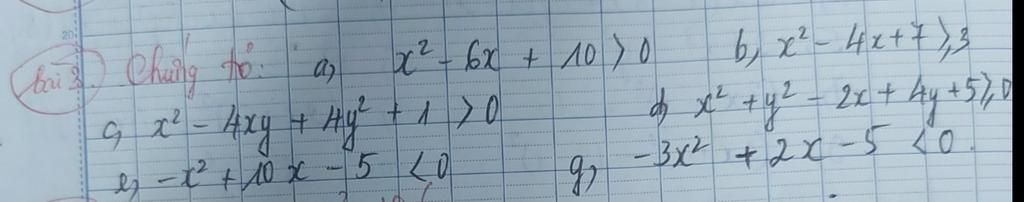 bài 3 Chứng tỏ: a, x² - 6x + 10 > 0 b, x² - 4x + 7 ≥ 3
c, x² - 4xy + 4y² + 1 > 0 d, x² + y² - 2x + 4y + 5 ≥ 0
e, -x² + 10x - 5 < 0 g, -3x² + 2x - 5 < 0.